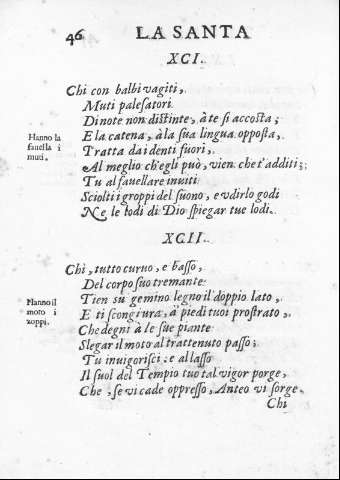 46 LA SANTA
XCI.
Chi con balbi vagiti,
Muti palesatori
Di note non distinte, à te si accosta;
E la catena, à la sua lingua opposta,
Hanno la
fauella i
muti.
Tratta da i denti fuori,
Al meglio ch'egli può, vien che t'additi;
Tu al fauellare inuiti
Sciolti i groppi del suono, e vdirlo godi
Ne le lodi di Dio spiegar tue lodi.
XCII.
Chi, tutto curuo, e basso,
Del corpo suo tremante
Tien su gemino legno il doppio lato,
Hanno il
moto i
zoppi.
E ti scongiura, à piedi tuoi prostrato,
Che degni à le sue piante
Slegar il moto al trattenuto passo;
Tu inuigorisci; e al lasso
Il suol del Tempio tuo tal vigor porge,
Che, se vi cade oppresso, Anteo vi sorge.
Chi